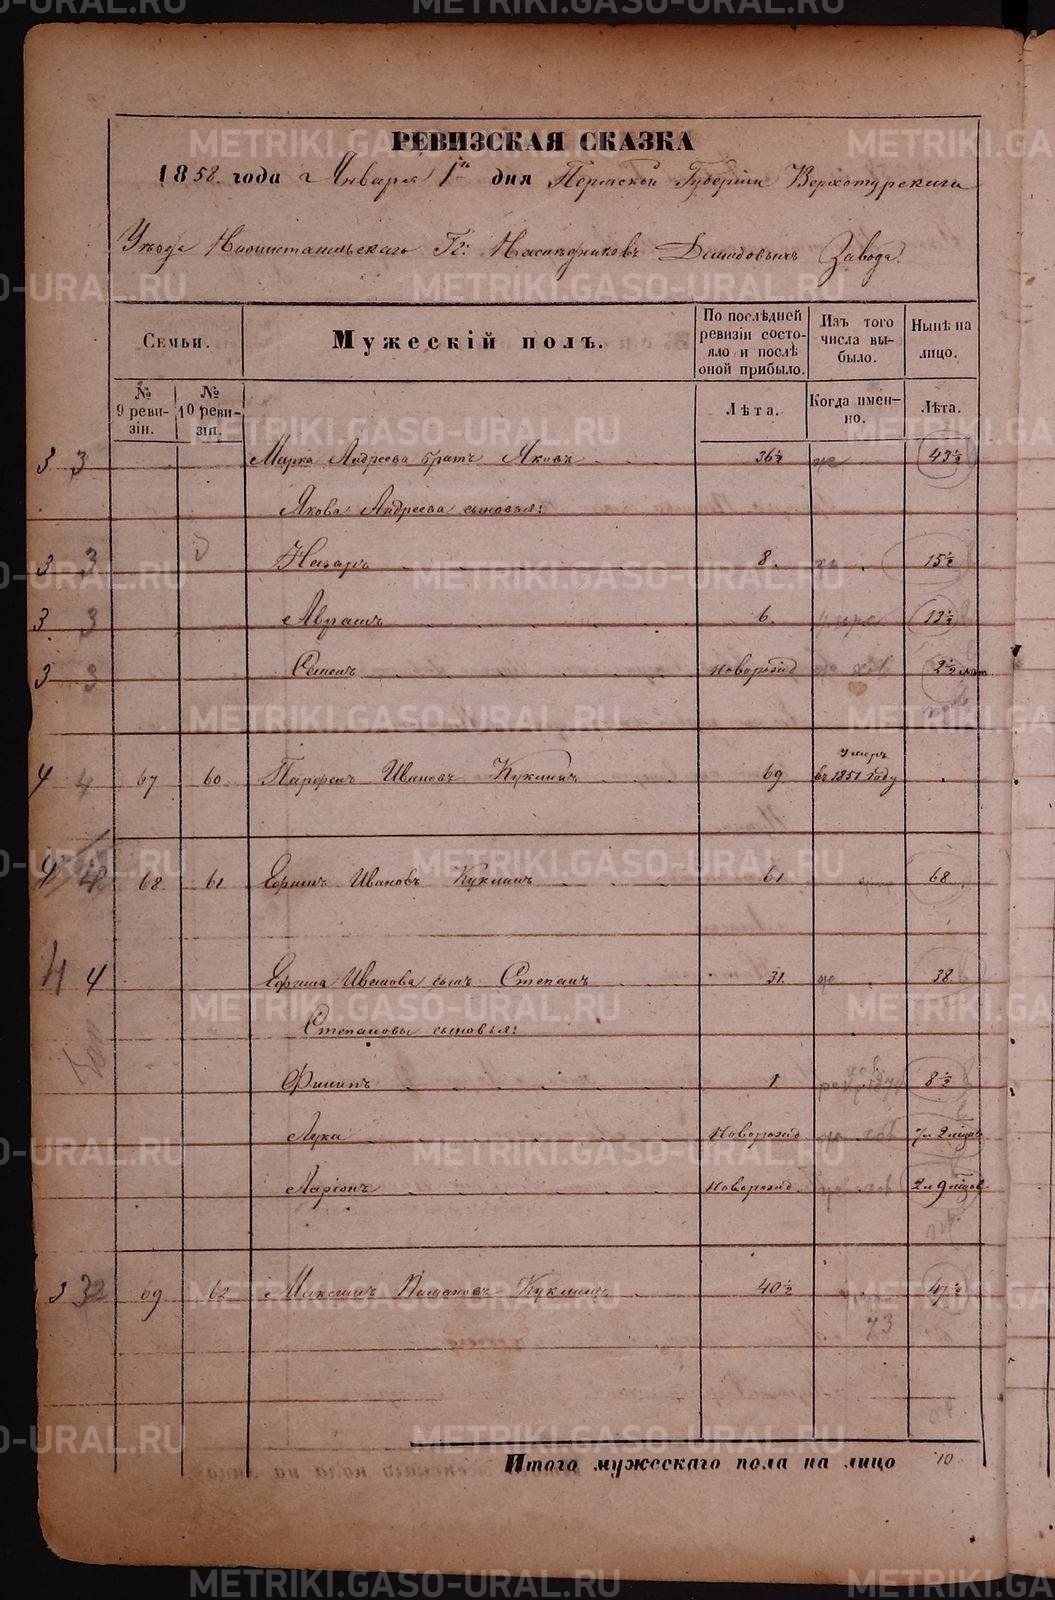 РЕВИЗСКАЯ СКАЗКА
1858. года Января 1го дня Пермской Губерніи Верхотурскаго
Уѣзда Гг: Наслѣдниковъ Демидовыхъ Завода.
Семьи.
Мужескій полъ.
По послѣдней ревизіи состояло и послѣ оной прибыло.
Изъ того числа выбыло.
Нынѣ на лицо.
№ 9 ревизіи.
№ 10 ревизіи.
Лѣта.
Когда именно.
Лѣта.
3 3 Марка Андреева братъ Яковъ 36½ 43½
Якова Андреева сыновья:
3 3 Назаръ 8. 15½
3. 3 Аврамъ 6. 13½
3 3 Семенъ новорожд 2½
4 4 67 60 Парфенъ Ивановъ Кукшинъ 69 Умеръ въ 1851 году
4 4 68 61 Ефимъ Ивановъ Кукшинъ 61 68
4 4 Ефима Иванова сынъ Степанъ 31. 38
Степановы сыновья:
Филипъ 1 8½
Лука новорожд 7 л 2 мѣсяц
Ларіонъ новорожд. 2 л 9 мѣсяц
3 32 69 62 Максимъ Кукшинъ 40½ 47½
73
Итого мужескаго пола на лицо 10
METRIKI.GASO-URAL.RU